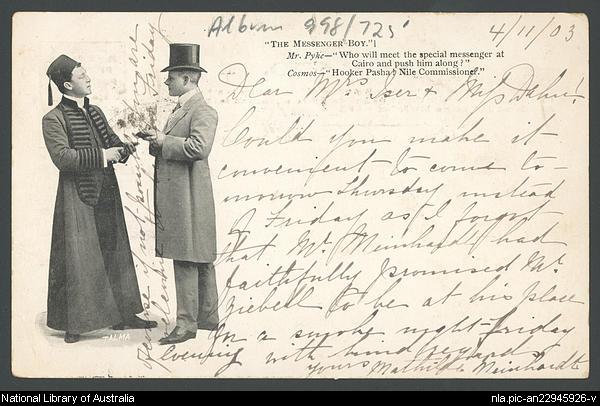 Album 998/725
4/11/03
"THE MESSENGER BOY."
Mr. Pyke—"Who will meet the special messenger at
Cairo and push him along?"
Cosmos—"Hooker Pasha? Nile Commissioner."
Dear Mrs Iser & Miss Dahn!
Could you make it
convenient to come to-
morrow Thursday instead
of Friday as I forgot
that Mr. Meinhardt had
faithfully promised Mr.
Ziebell to be at his place
for a smoke night-Friday
Evening with kind regards
yours Mathilde Meinhardt
if not
Friday
TALMA
National Library of Australia
nla.pic-an22945926-v